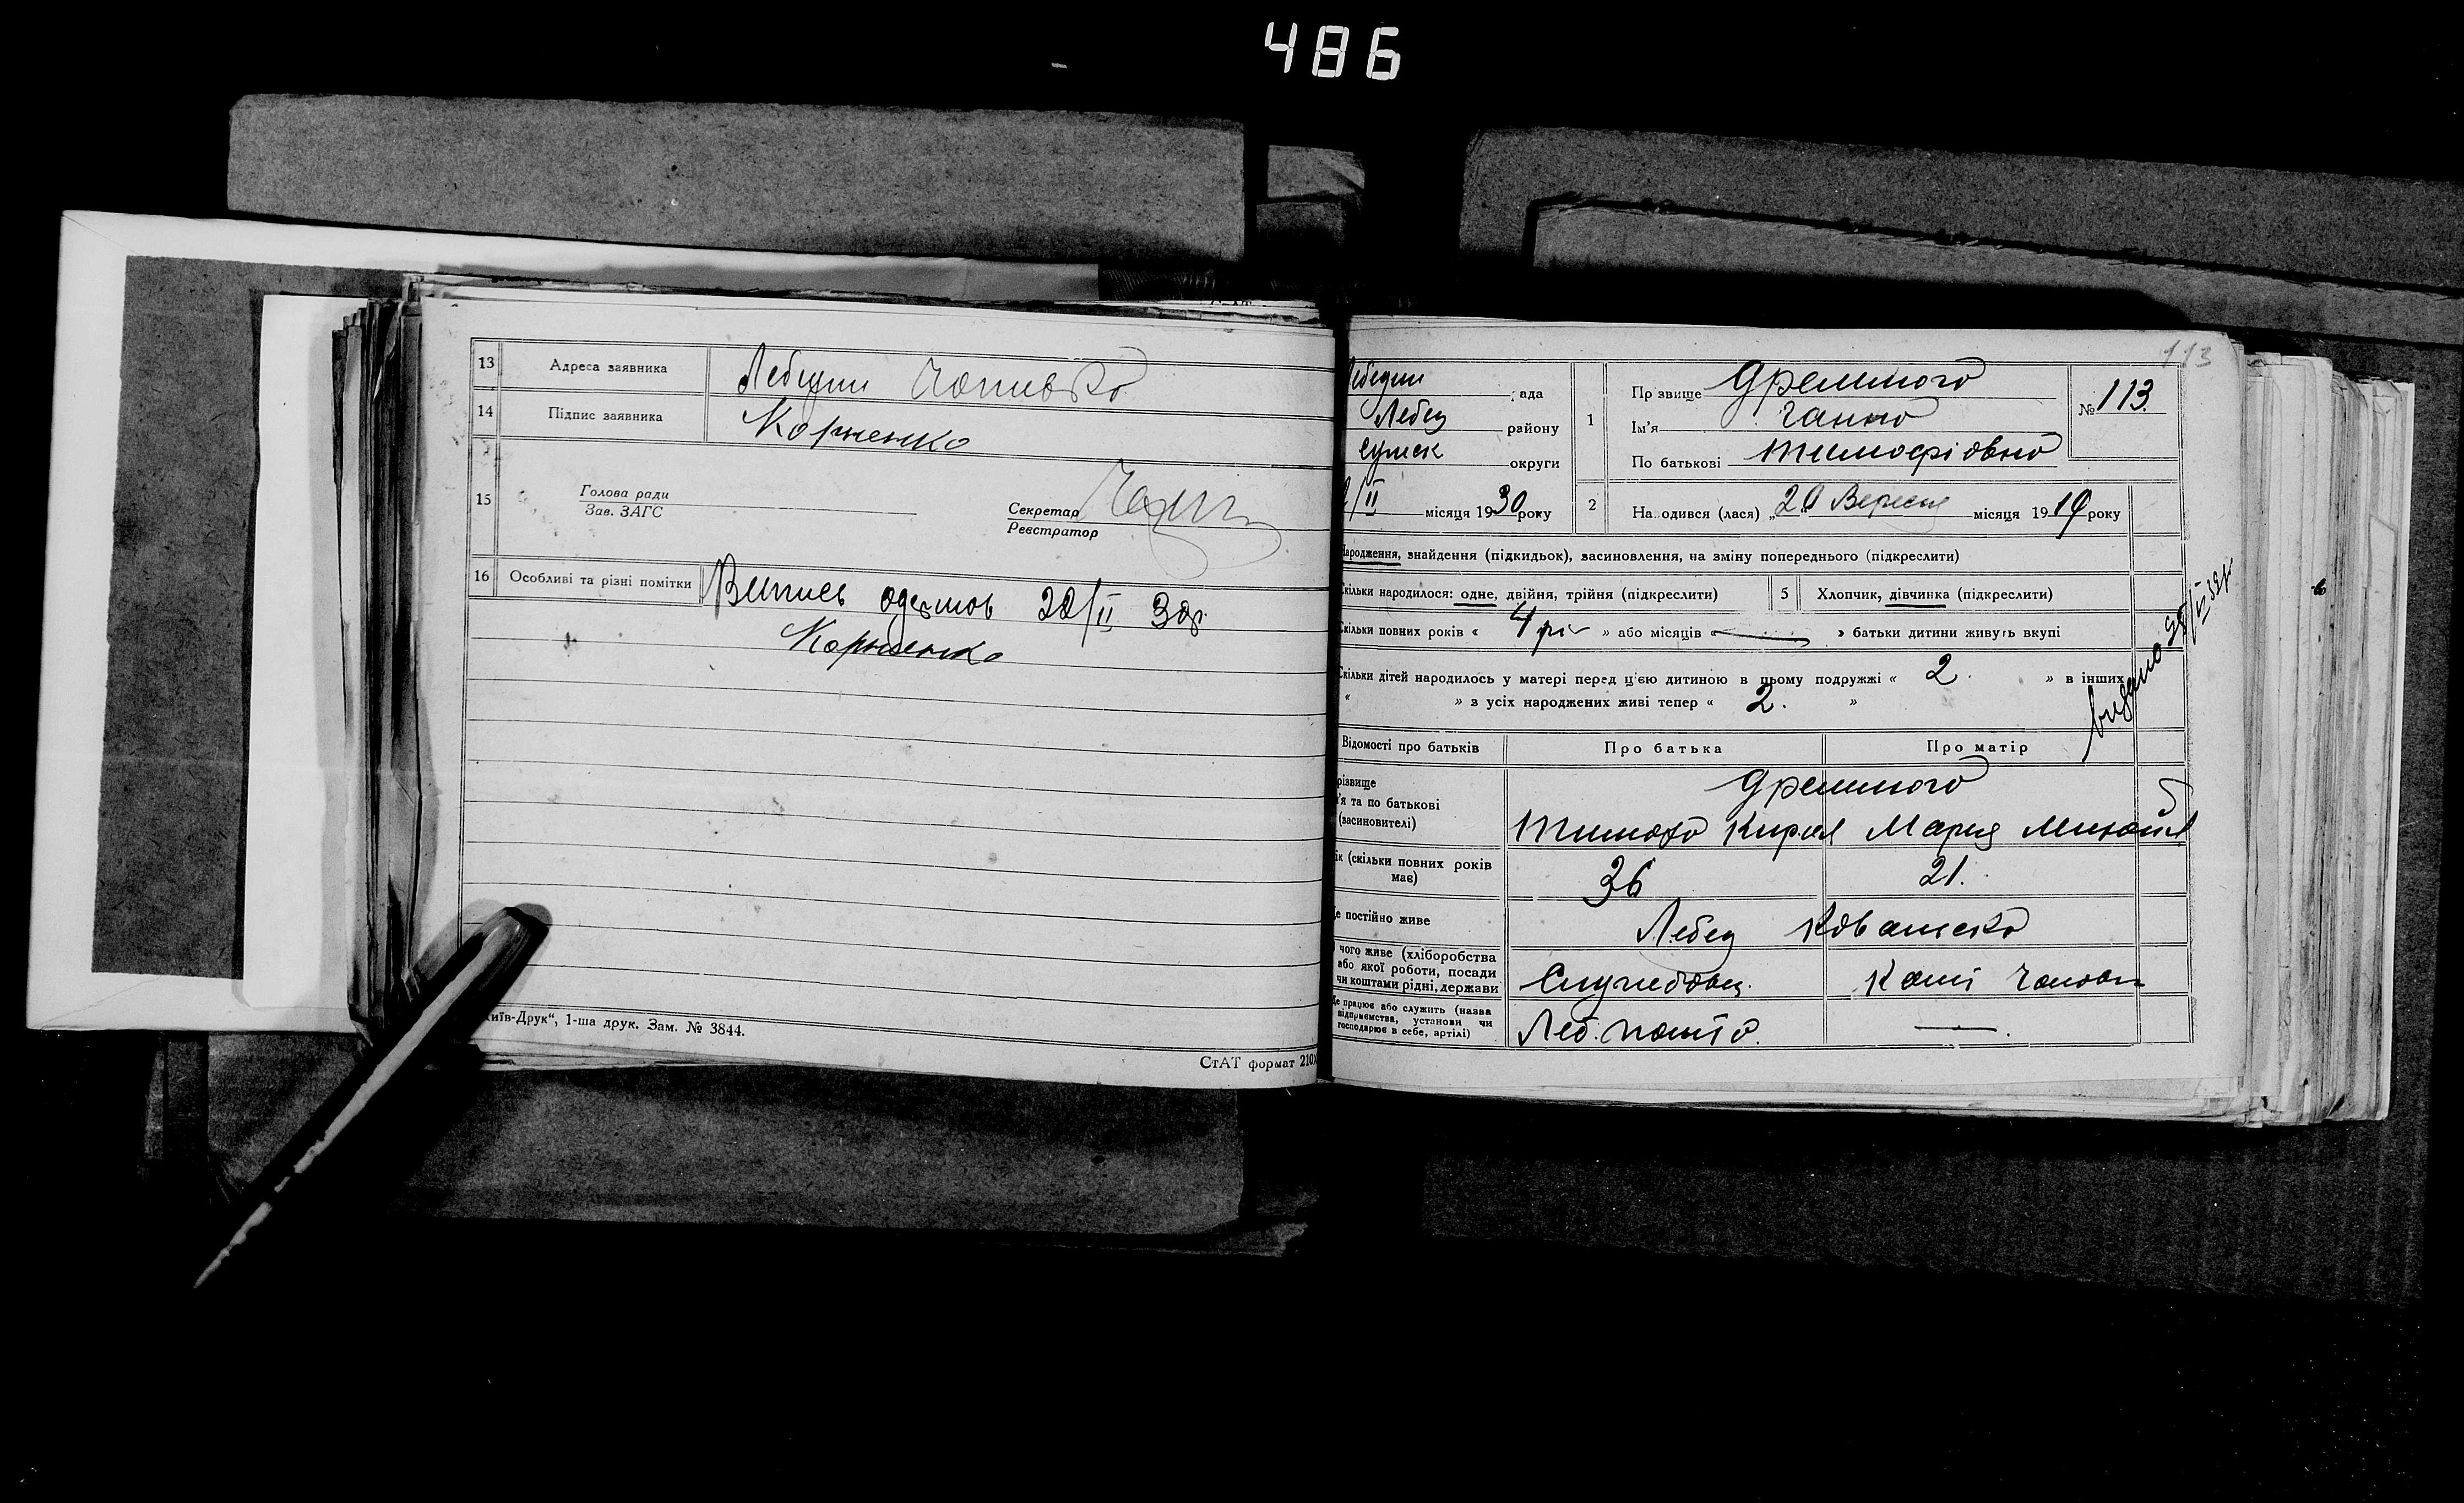 486
13 Адреса заявника Лебедин
14 Підпис заявника Корненко
15 Голова ради
Зав. ЗАГС
Секретар
Реєстратор
16 Особливі та різні помітки Випись одержав 22/II 30р.
Корненко
иїв-Друк“, 1-ша друк. Зам. № 3844.
СтАТ формат 210
113
Лебедин рада
Лебед району
Сумск округи
/II місяця 1930 року
1 Прізвище Дремлюго
Ім'я Ганна
По батькові Тимофіовна
№ 113
2 На одився (лася) „20 Вересня місяця 19 року
ародження, знайдення (підкидьок), васиновлення, на зміну попереднього (підкреслити)
кільки народилося: одне, двійня, трійня (підкреслити)
5 Хлопчик, дівчинка (підкреслити)
кільки повних років « 4 рік » або місяців « — » батьки дитини живуть вкупі
кільки дітей народилось у матері перед ц'єю дитиною в цьому подружжі « 2. » в інших
« » з усіх народжених живі тепер « 2. »
видано
Відомості про батьків Про батька Про матір
різвище
'я та по батькові
(васиновителі)
Дремлюго
Тимофо Кирил Мария Михайл
ік (скільки повних років має) 36 21.
е постійно живе Лебед
чого живе (хліборобства
або якої роботи, посади
чи коштами рідні, держави
Службовец. Кошт Чолов
е працює або служить (назва
підприємства, установи чи
господарює в себе, артілі)
Леб. пошта. —